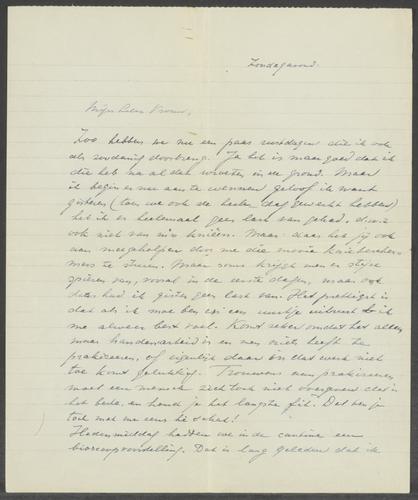 Zondagavond.
Mijn lieve Vrouw,
Zoo hebben we nu een paar rustdagen die ik ook
als zoodanig doorbreng. Ja het is maar goed dat ik
die heb na al dat wroeten in de grond. Maar
ik begin er nu aan te wennen geloof ik want
gisteren (toen we ook de heelen dag gewerkt hebben)
heb ik er heelemaal geen last van gehad. d.w.z.
ook niet van m'n knieën. Maar daar heb jij ook
aan meegeholpen door me die mooie kniebescher-
mers te sturen. Maar soms krijgt men er stijve
spieren van, vooral in de eerste dagen, maar ook
had ik gisteren geen last van. Het prettigst is
dat als ik moe ben en een uurtje uitrust ik
me alweer best voel. Komt zeker omdat het alles
maar handenarbeid is en men niets heeft te
prakizeeren, of eigenlijk daar in dat werk niet
toe komt gelukkig. Trouwens van prakizeeren
moet een mensch zich toch niet overgeven dat is
het beste en houd je het langste fit. Dat ben je
toch met me eens hè schat!
Hedenmiddag hadden we in de cantine een
bioscoopvoorstelling. Dat is lang geleden dat ik